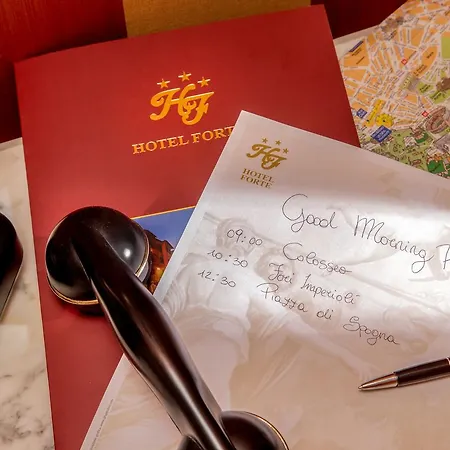 HF
HOTEL FORTE
HF
HOTEL
FORTE
Good Morning
09:00 Colosseo
10:30 Fori Imperiali
12:30 Piazza di Spagna